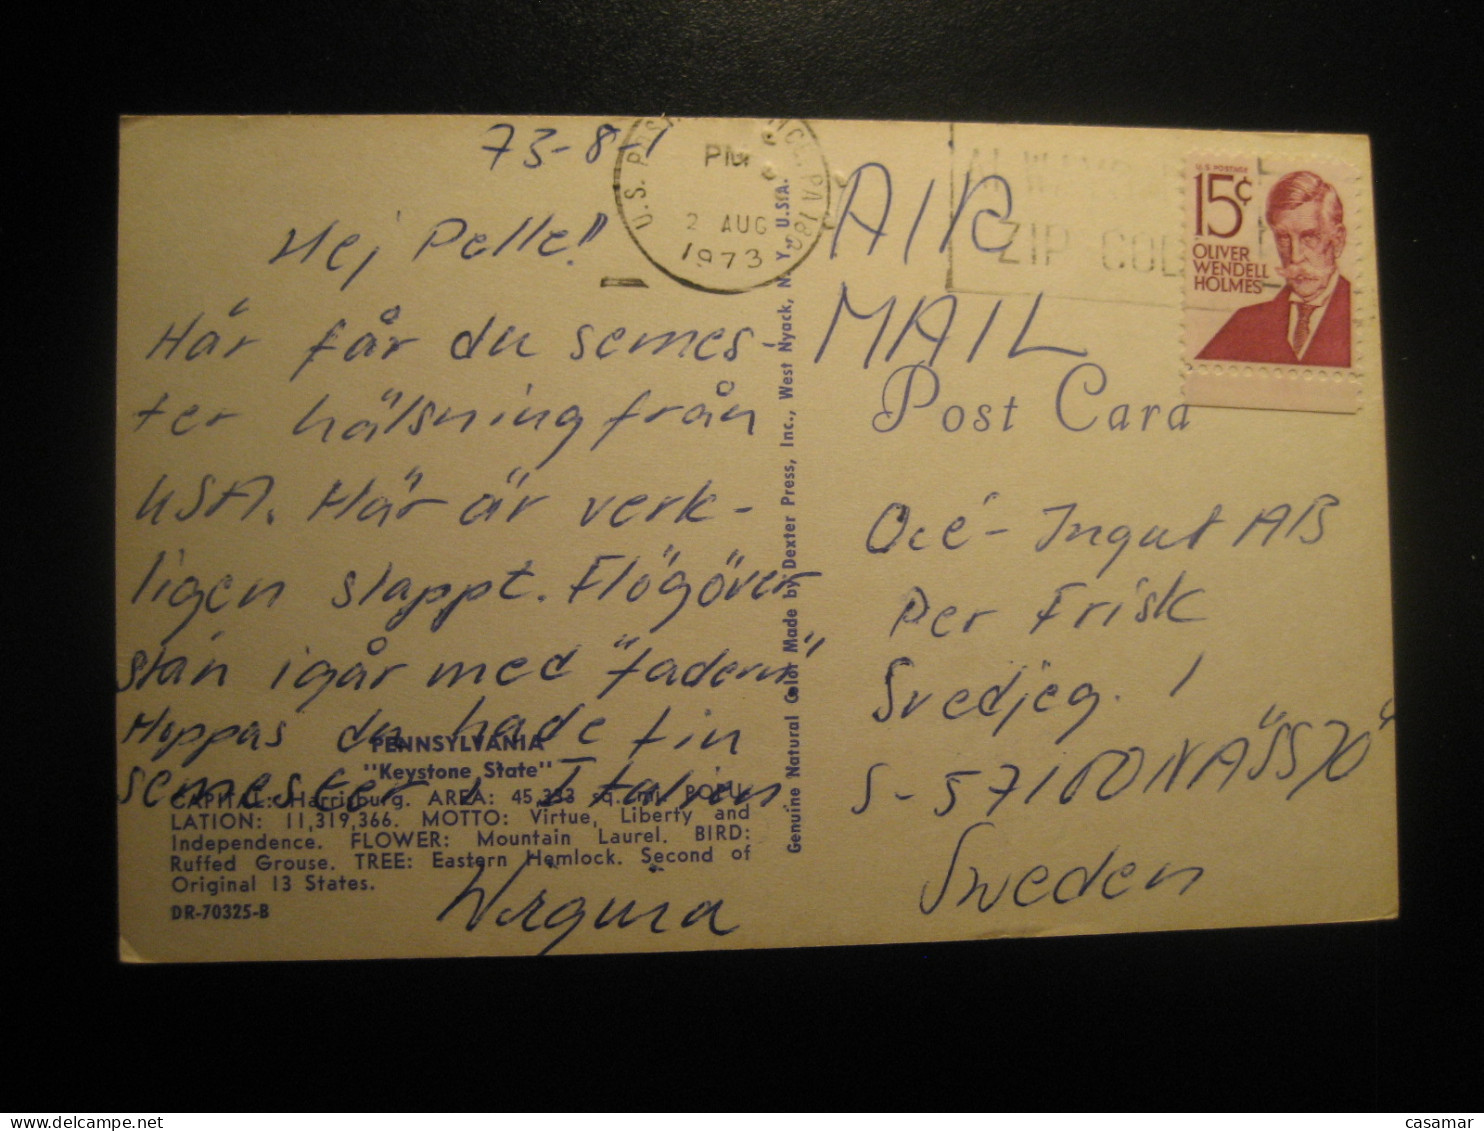 73-8-1
Hej Pelle!!
Här får du semes-
ter hälsning från
USA. Här är verk-
ligen slappt. Flög över
stan igår med "fadern"
Hoppas du hade fin
semester i Italien
PENNSYLVANIA
"Keystone State"
CAPITAL: Harrisburg. AREA: 45,333 sq. mi. POPU-
LATION: 11,319,366. MOTTO: Virtue, Liberty and
Independence. FLOWER: Mountain Laurel. BIRD:
Ruffed Grouse. TREE: Eastern Hemlock. Second of
Original 13 States.
DR-70325-B
Genuine Natural Color Made by Dexter Press, Inc., West Nyack, N. Y., U.S.A.
U.S. PA
PM
2 AUG
1973
ZIP CODE
U.S. POSTAGE
15¢
OLIVER
WENDELL
HOLMES
AIR
MAIL
Post Card
Océ-Ingut AB
Per Frisk
Svedjeg. 1
S-57100 NÄSSJÖ
Sweden
casamar
www.delcampe.net